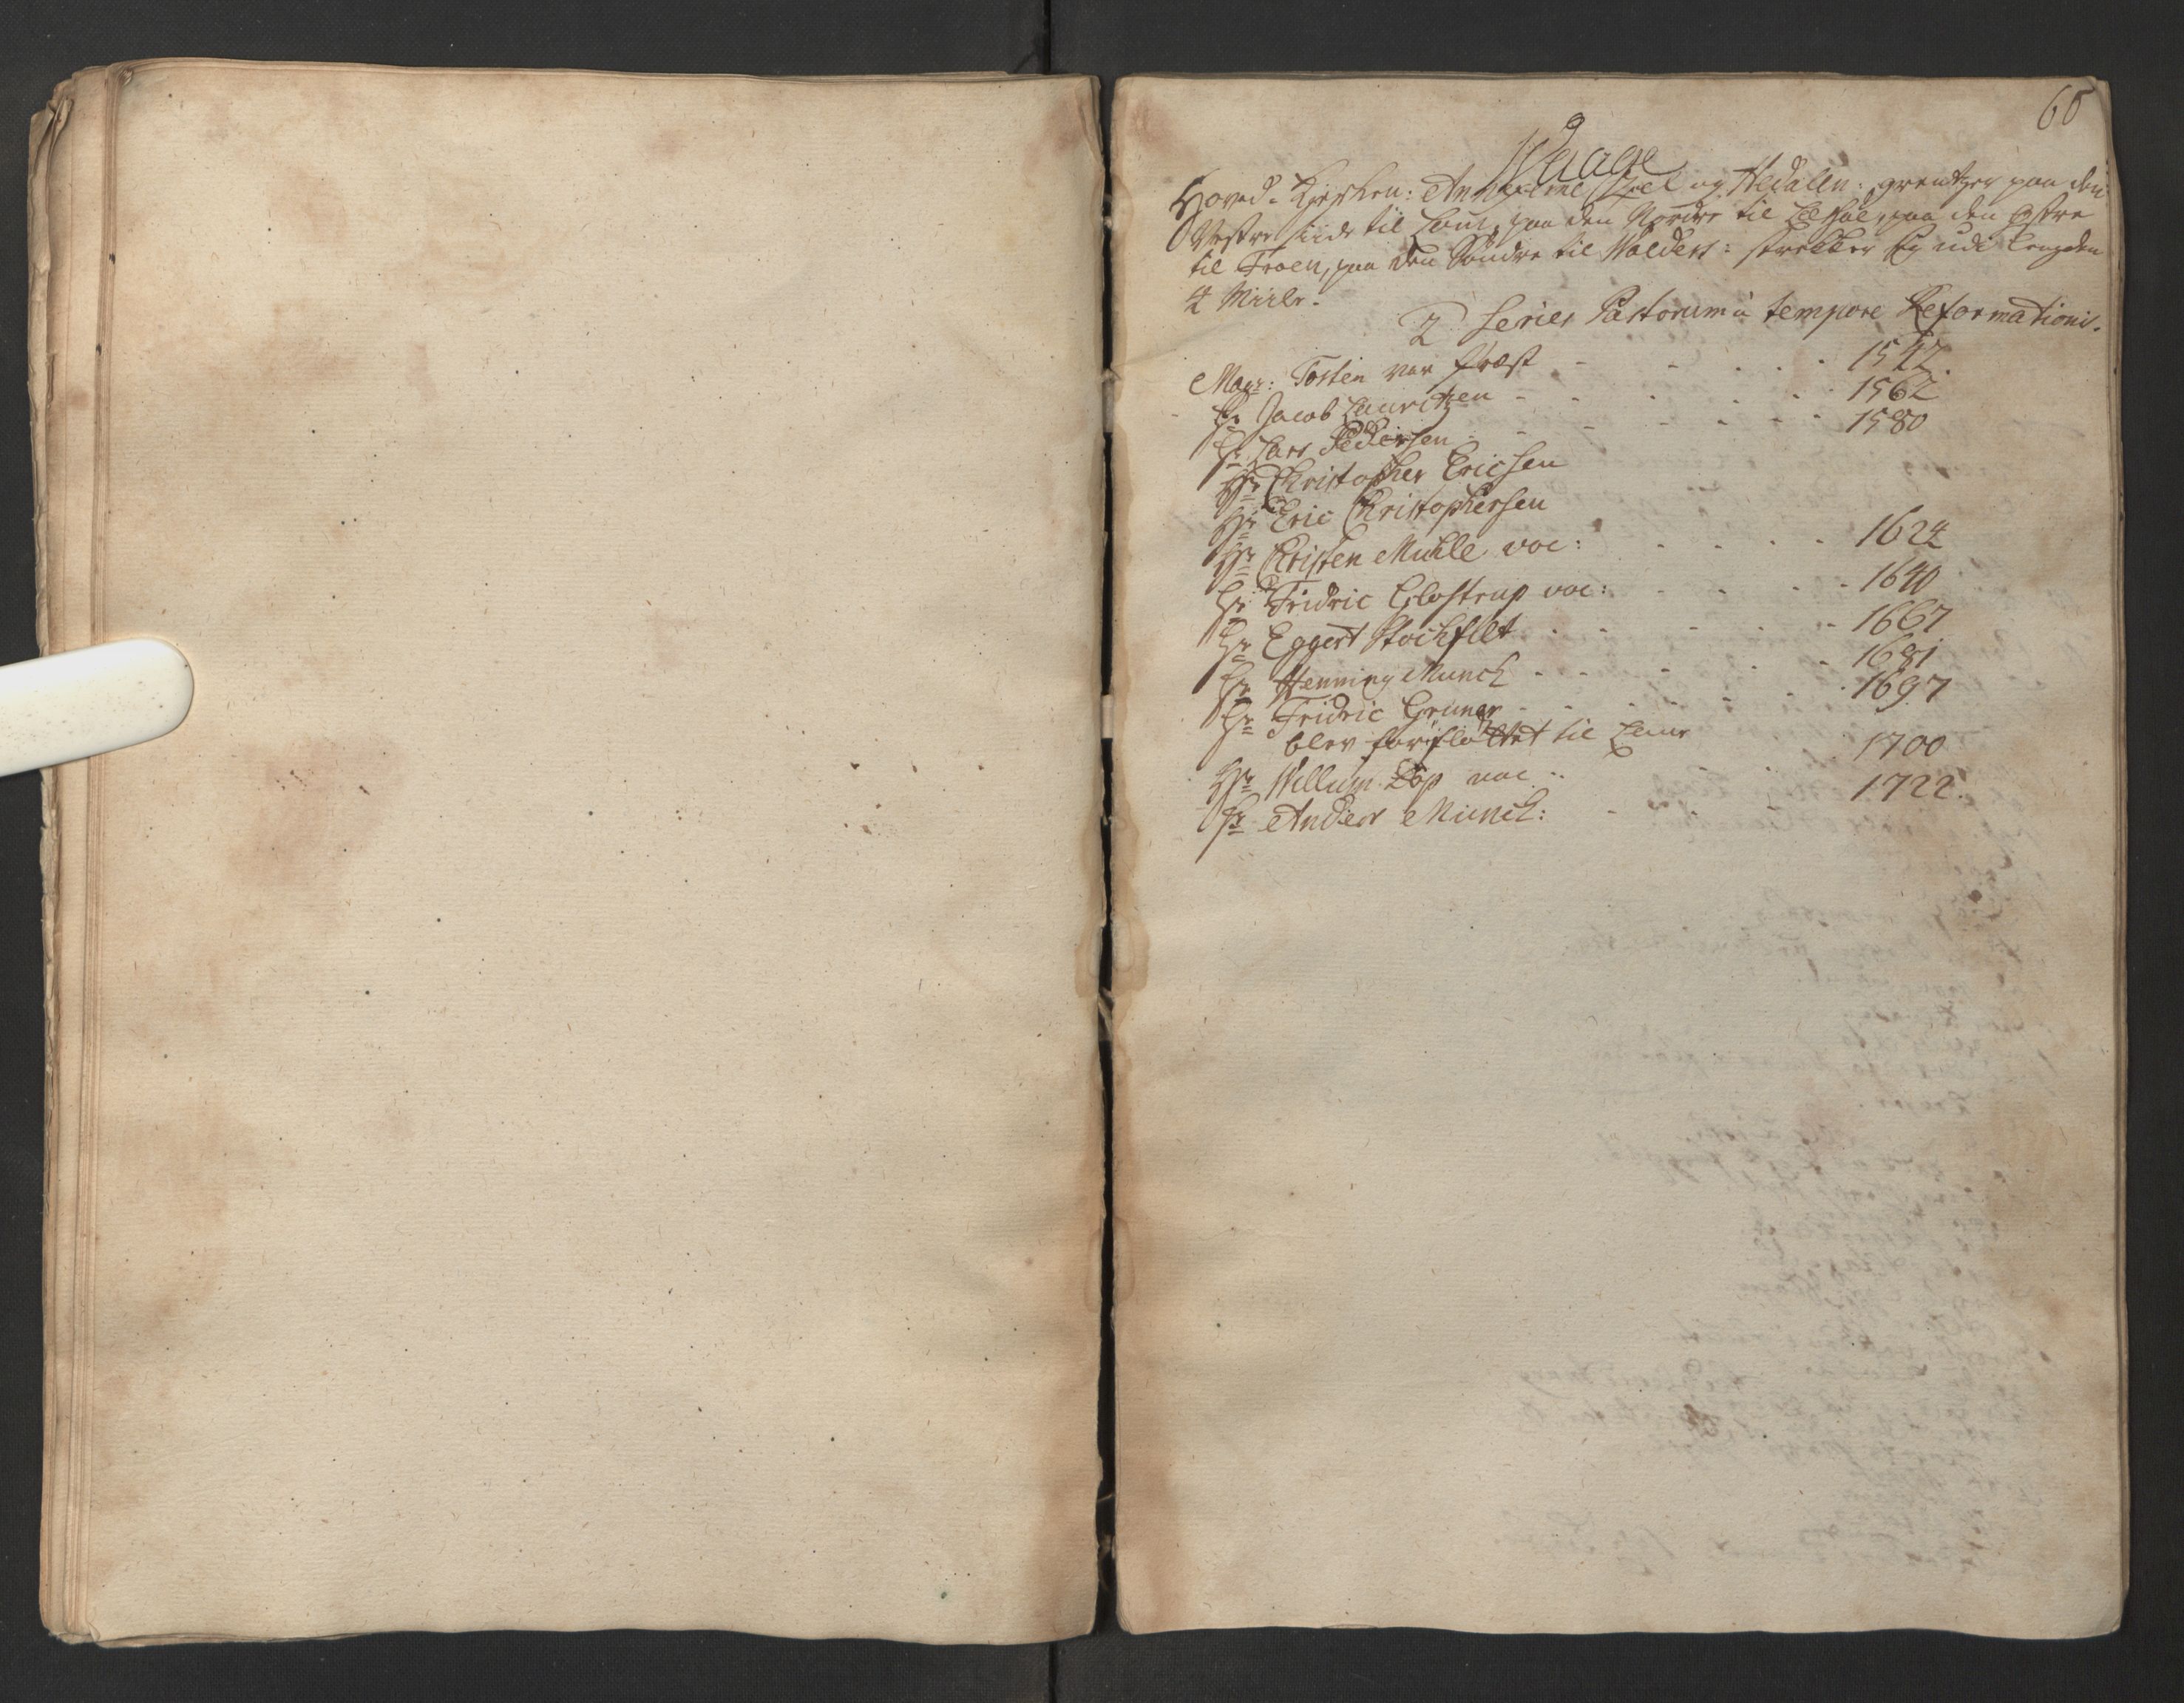 60
Waage
Hoved-Kirken: Annexerne Zeel og Hedalen: grentzer paa den
Vestre siide til Lom, paa den Nordre til Lessøe, paa den Østre
til Froen, paa den Søndre til Walders: strekker sig udi Lengden
4 Miile.
2 Series Pastorum à tempore Reformationis.
Magr: Tosten var Præst - - - - 1542.
Hr Jacob Lauritzen - - - - 1562
Hr Lars Pedersen - - - - 1580
Hr Christopher Ericsen
Hr Eric Christophersen
Hr Christen Muhle voc: - - - - 1624
Hr Fridric Glostrup voc: - - - - 1640
Hr Eggert Stochflet - - - - 1667
Hr Henning Munch - - - - 1681
Hr Fridric Gruner - - - - 1697
blev forflöttet til Lom
Hr Willum Dop voc: - - 1700
Hr Anders Munch: - - - 1722.